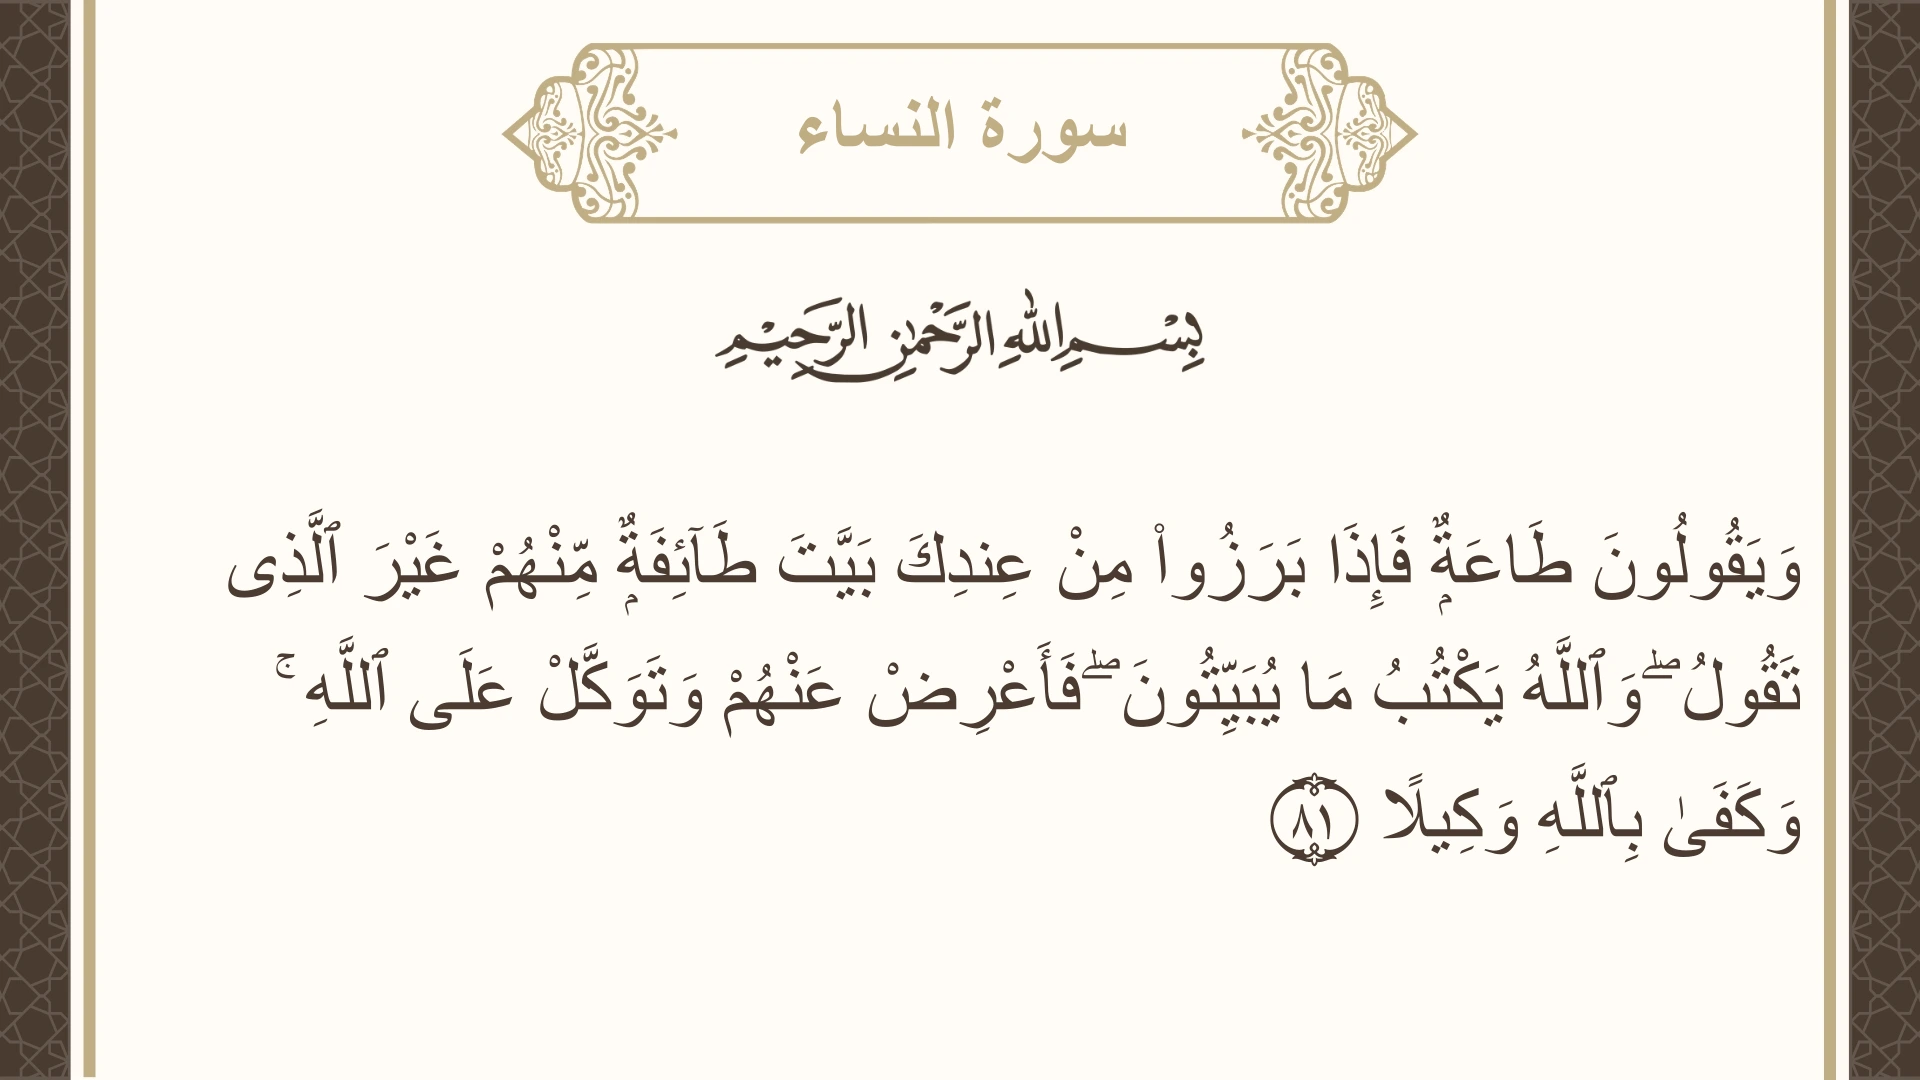 سورة النساء
بِسْمِ اللهِ الرَّحْمٰنِ الرَّحِيْمِ
وَيَقُولُونَ طَاعَةٌۭ فَإِذَا بَرَزُوا۟ مِنْ عِندِكَ بَيَّتَ طَآئِفَةٌۭ مِّنْهُمْ غَيْرَ ٱلَّذِى
تَقُولُ ۖ وَٱللَّهُ يَكْتُبُ مَا يُبَيِّتُونَ ۖ فَأَعْرِضْ عَنْهُمْ وَتَوَكَّلْ عَلَى ٱللَّهِ ۚ
وَكَفَىٰ بِٱللَّهِ وَكِيلًا ٨١